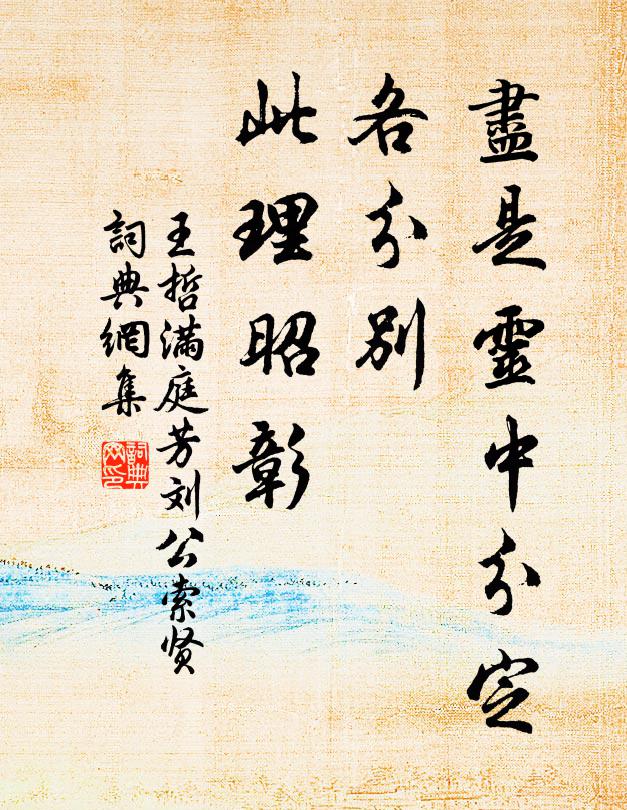 盡是靈中分定
各分別
此理昭彰
王哲满庭芳刘公索贤
詞典網集
詞典
网印